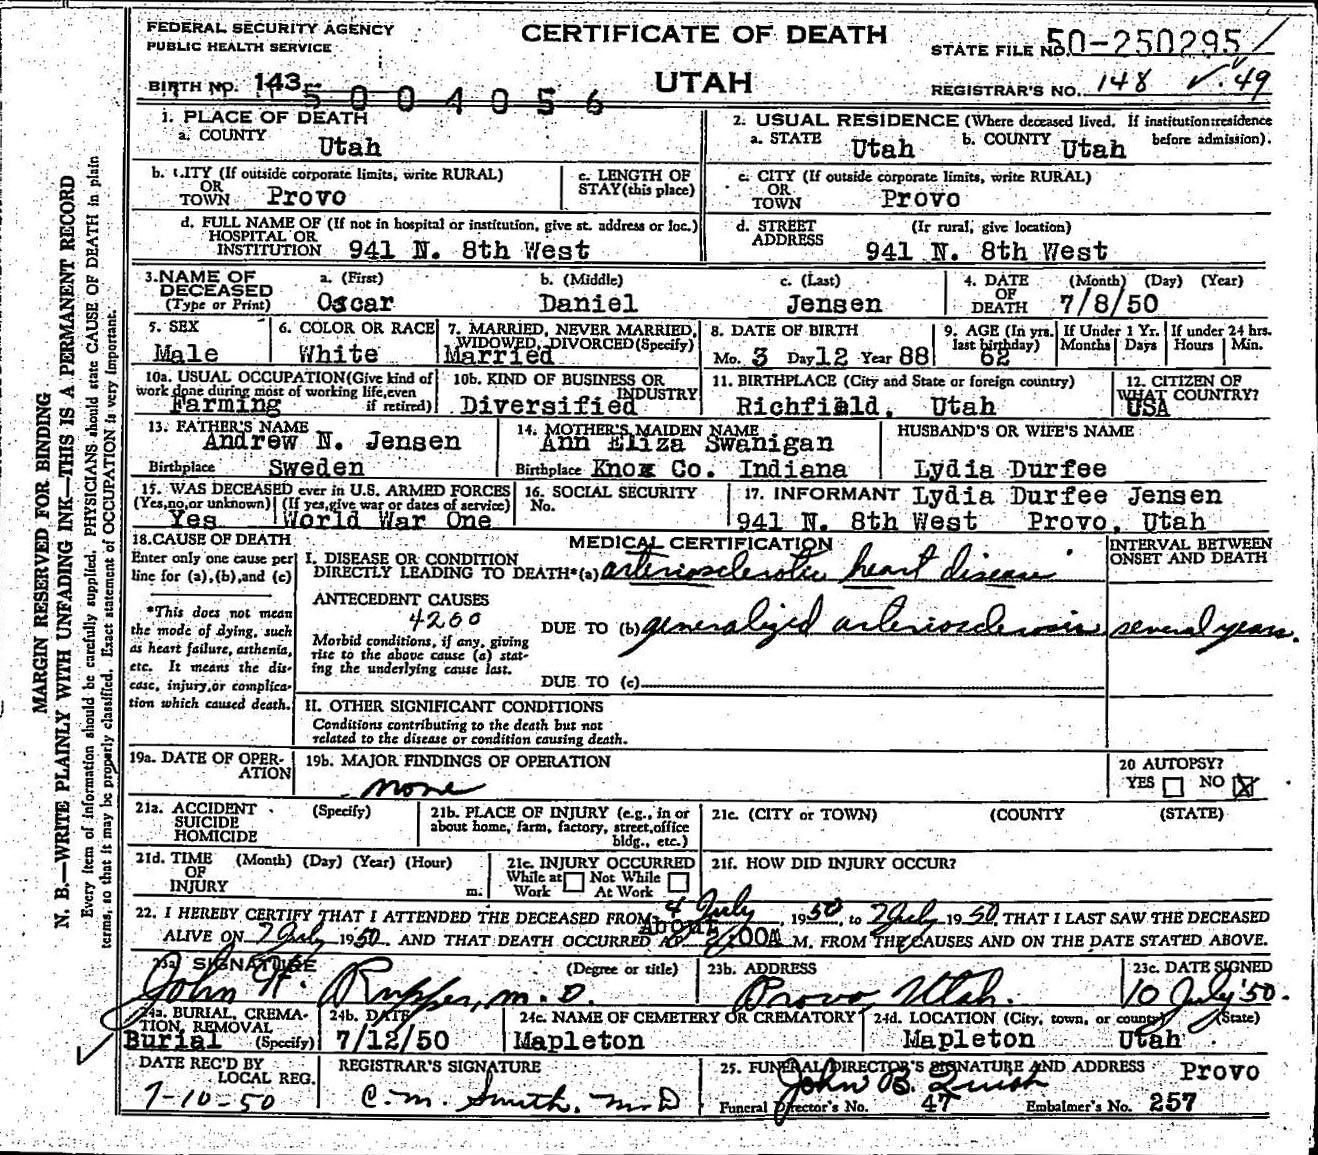 FEDERAL SECURITY AGENCY
PUBLIC HEALTH SERVICE
CERTIFICATE OF DEATH
UTAH
STATE FILE NO. 50-250295
REGISTRAR'S NO. 148 49
BIRTH NO. 143
5004056
1. PLACE OF DEATH
a. COUNTY
Utah
2. USUAL RESIDENCE (Where deceased lived. If institution:residence before admission).
a. STATE Utah b. COUNTY Utah
b. CITY (If outside corporate limits, write RURAL)
OR
TOWN Provo
c. LENGTH OF
STAY (this place)
c. CITY (If outside corporate limits, write RURAL)
OR
TOWN Provo
d. FULL NAME OF (If not in hospital or institution, give st. address or loc.)
HOSPITAL OR
INSTITUTION 941 N. 8th West
d. STREET (Ir rural, give location)
ADDRESS
941 N. 8th West
3. NAME OF DECEASED
(Type or Print)
a. (First) b. (Middle) c. (Last)
Oscar Daniel Jensen
4. DATE OF DEATH (Month) (Day) (Year)
7/8/50
5. SEX
Male
6. COLOR OR RACE
White
7. MARRIED, NEVER MARRIED,
WIDOWED, DIVORCED (Specify)
Married
8. DATE OF BIRTH
Mo. 3 Day 12 Year 88
9. AGE (In yrs. last birthday)
62
If Under 1 Yr.
Months Days
If under 24 hrs.
Hours Min.
10a. USUAL OCCUPATION (Give kind of
work done during most of working life, even
if retired)
Farming
10b. KIND OF BUSINESS OR
INDUSTRY
Diversified
11. BIRTHPLACE (City and State or foreign country)
Richfield, Utah
12. CITIZEN OF
WHAT COUNTRY?
USA
13. FATHER'S NAME
Andrew N. Jensen
Birthplace Sweden
14. MOTHER'S MAIDEN NAME
Ann Eliza Swanigan
Birthplace Knox Co. Indiana
HUSBAND'S OR WIFE'S NAME
Lydia Durfee
15. WAS DECEASED ever in U.S. ARMED FORCES
(Yes, no, or unknown) (If yes, give war or dates of service)
Yes World War One
16. SOCIAL SECURITY
No.
17. INFORMANT Lydia Durfee Jensen
941 N. 8th West Provo, Utah
18. CAUSE OF DEATH
Enter only one cause per
line for (a), (b), and (c)
*This does not mean
the mode of dying, such
as heart failure, asthenia,
etc. It means the dis-
ease, injury, or complica-
tion which caused death.
MEDICAL CERTIFICATION
INTERVAL BETWEEN
ONSET AND DEATH
I. DISEASE OR CONDITION
DIRECTLY LEADING TO DEATH*(a) arteriosclerotic heart disease
ANTECEDENT CAUSES
4200
Morbid conditions, if any, giving
rise to the above cause (a) stat-
ing the underlying cause last.
DUE TO (b) generalized arteriosclerosis several years.
DUE TO (c)
II. OTHER SIGNIFICANT CONDITIONS
Conditions contributing to the death but not
related to the disease or condition causing death.
19a. DATE OF OPER-
ATION
19b. MAJOR FINDINGS OF OPERATION
none
20 AUTOPSY?
YES NO X
21a. ACCIDENT (Specify)
SUICIDE
HOMICIDE
21b. PLACE OF INJURY (e.g., in or
about home, farm, factory, street, office
bldg., etc.)
21c. (CITY or TOWN) (COUNTY) (STATE)
21d. TIME (Month) (Day) (Year) (Hour)
OF
INJURY m.
21e. INJURY OCCURRED
While at Work Not While At Work
21f. HOW DID INJURY OCCUR?
22. I HEREBY CERTIFY THAT I ATTENDED THE DECEASED FROM 4 July, 1950, to 7 July 1950 THAT I LAST SAW THE DECEASED
About
ALIVE ON 7 July 1950 AND THAT DEATH OCCURRED AT 2:00A M. FROM THE CAUSES AND ON THE DATE STATED ABOVE.
23a. SIGNATURE (Degree or title)
John H. Rupper, M.D.
23b. ADDRESS
Provo, Utah.
23c. DATE SIGNED
10 July '50.
24a. BURIAL, CREMA-
TION, REMOVAL
(Specify)
Burial
24b. DATE
7/12/50
24c. NAME OF CEMETERY OR CREMATORY
Mapleton
24d. LOCATION (City, town, or county) (State)
Mapleton Utah
DATE REC'D BY
LOCAL REG.
7-10-50
REGISTRAR'S SIGNATURE
C. M. Smith, M.D
25. FUNERAL DIRECTOR'S SIGNATURE AND ADDRESS Provo
John B.
Funeral Director's No. 47 Embalmer's No. 257
MARGIN RESERVED FOR BINDING
N. B.—WRITE PLAINLY WITH UNFADING INK—THIS IS A PERMANENT RECORD
Every item of information should be carefully supplied. PHYSICIANS should state CAUSE OF DEATH in plain
terms, so that it may be properly classified. Exact statement of OCCUPATION is very important.